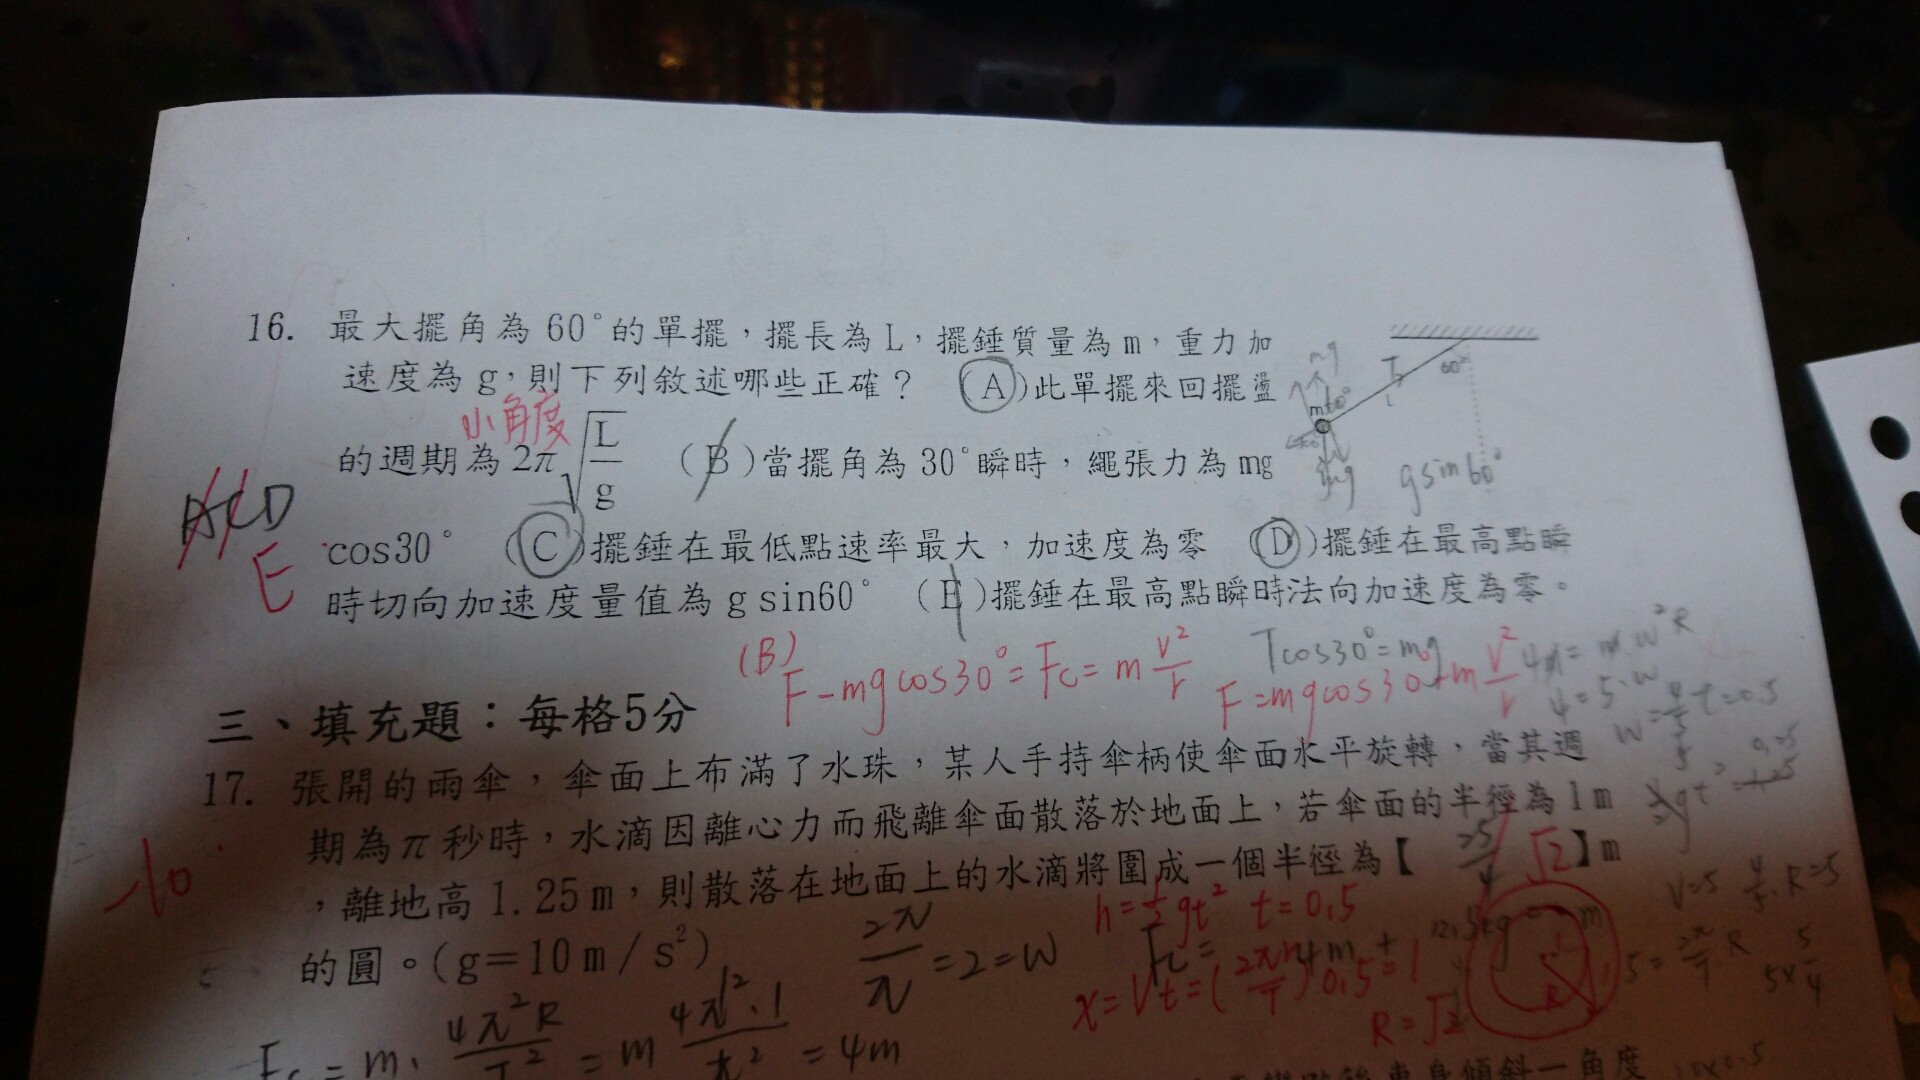 16. 最大擺角為60°的單擺，擺長為L，擺錘質量為m，重力加
速度為g，則下列敘述哪些正確？ (A)此單擺來回擺盪
小角度
的週期為2π√(L/g) (B)當擺角為30°瞬時，繩張力為mg
cos30° (C)擺錘在最低點速率最大，加速度為零 (D)擺錘在最高點瞬
時切向加速度量值為gsin60° (E)擺錘在最高點瞬時法向加速度為零。
ACD
E
mg
T
60°
m
60°
L
mg
gsin60°
(B)
F-mgcos30°=Fc=m v²/r
Tcos30°=mg
F=mgcos30+m v²/r
4=5·w
t=0.5
三、填充題：每格5分
17. 張開的雨傘，傘面上布滿了水珠，某人手持傘柄使傘面水平旋轉，當其週
期為π秒時，水滴因離心力而飛離傘面散落於地面上，若傘面的半徑為1m
，離地高1.25m，則散落在地面上的水滴將圍成一個半徑為【 √2】m
的圓。(g=10m/s²)
-10
2π/π=2=w
h=½gt² t=0.5
x=Vt=(2πr/T)0.5=1
R=√2
V=5
5=2π/T R
5×5/4
Fc=m·4π²R/T²=m 4π²·1/π²=4m
車身傾斜一角度